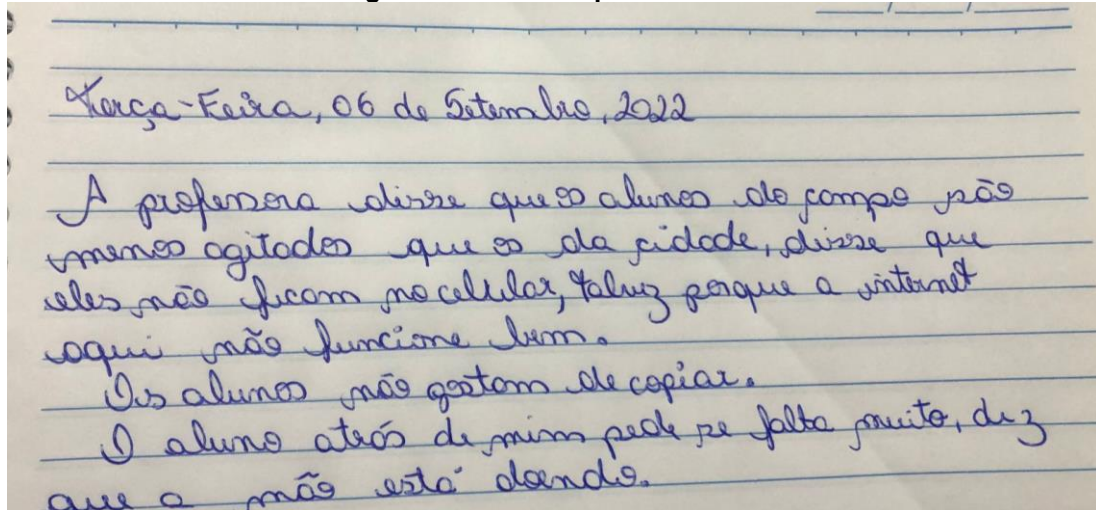 Terça-Feira, 06 de Setembro, 2022
A professora disse que os alunos do campo são
menos agitados que os da cidade, disse que
eles não ficam no celular, talvez porque a internet
aqui não funcione bem.
Os alunos não gostam de copiar.
O aluno atrás de mim pede se falta muito, diz
que a mão está doendo.